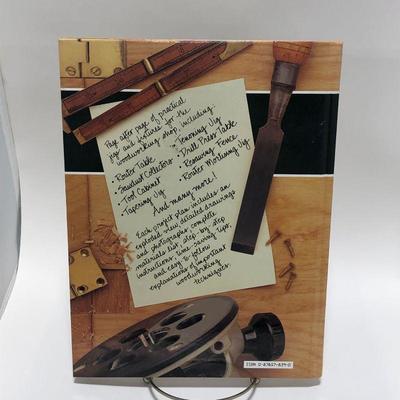 Page after page of practical
jigs and fixtures for the
woodworking shop, including:
• Router Table
• Sawdust Collectors
• Tool Cabinet
• Tapering Jig
• Tenoning Jig
• Drill Press Table
• Resawing Fence
• Router Mortising Jig
And many more!
Each project plan includes an
exploded view, detailed drawings
and photographs, complete
materials list, step-by-step
instructions, time saving tips,
and easy-to-follow
explanations of important
woodworking
techniques.
ISBN 0-87857-839-0